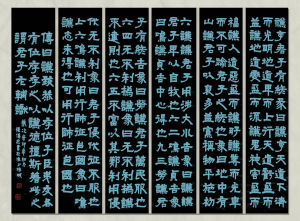 謙亨君子有終彖曰謙亨天道下濟
而光明地道卑而上行天道虧盈而
益謙地道變盈而流謙鬼神害盈而
福謙人道惡盈而好謙謙尊而光卑
而不可踰君子之終也象曰地中有
山謙君子以裒多益寡稱物平施初
六謙謙君子用涉大川吉象曰謙謙
君子卑以自牧也六二鳴謙貞吉象
曰鳴謙貞吉中心得也九三勞謙君
子有終吉象曰勞謙君子萬民服也
六四无不利撝謙象曰无不利撝謙
不違則也六五不富以其鄰利用侵
伐无不利象曰利用侵伐征不服也
上六鳴謙利用行師征邑國象曰鳴
謙志未得也可用行師征邑國也
傳曰謙致恭以存位